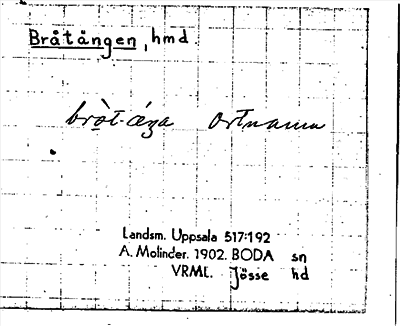 Bråtången, hmd.
ortnamn
Landsm. Uppsala 517:192
A. Molinder. 1902. BODA sn
VRML. Jösse hd